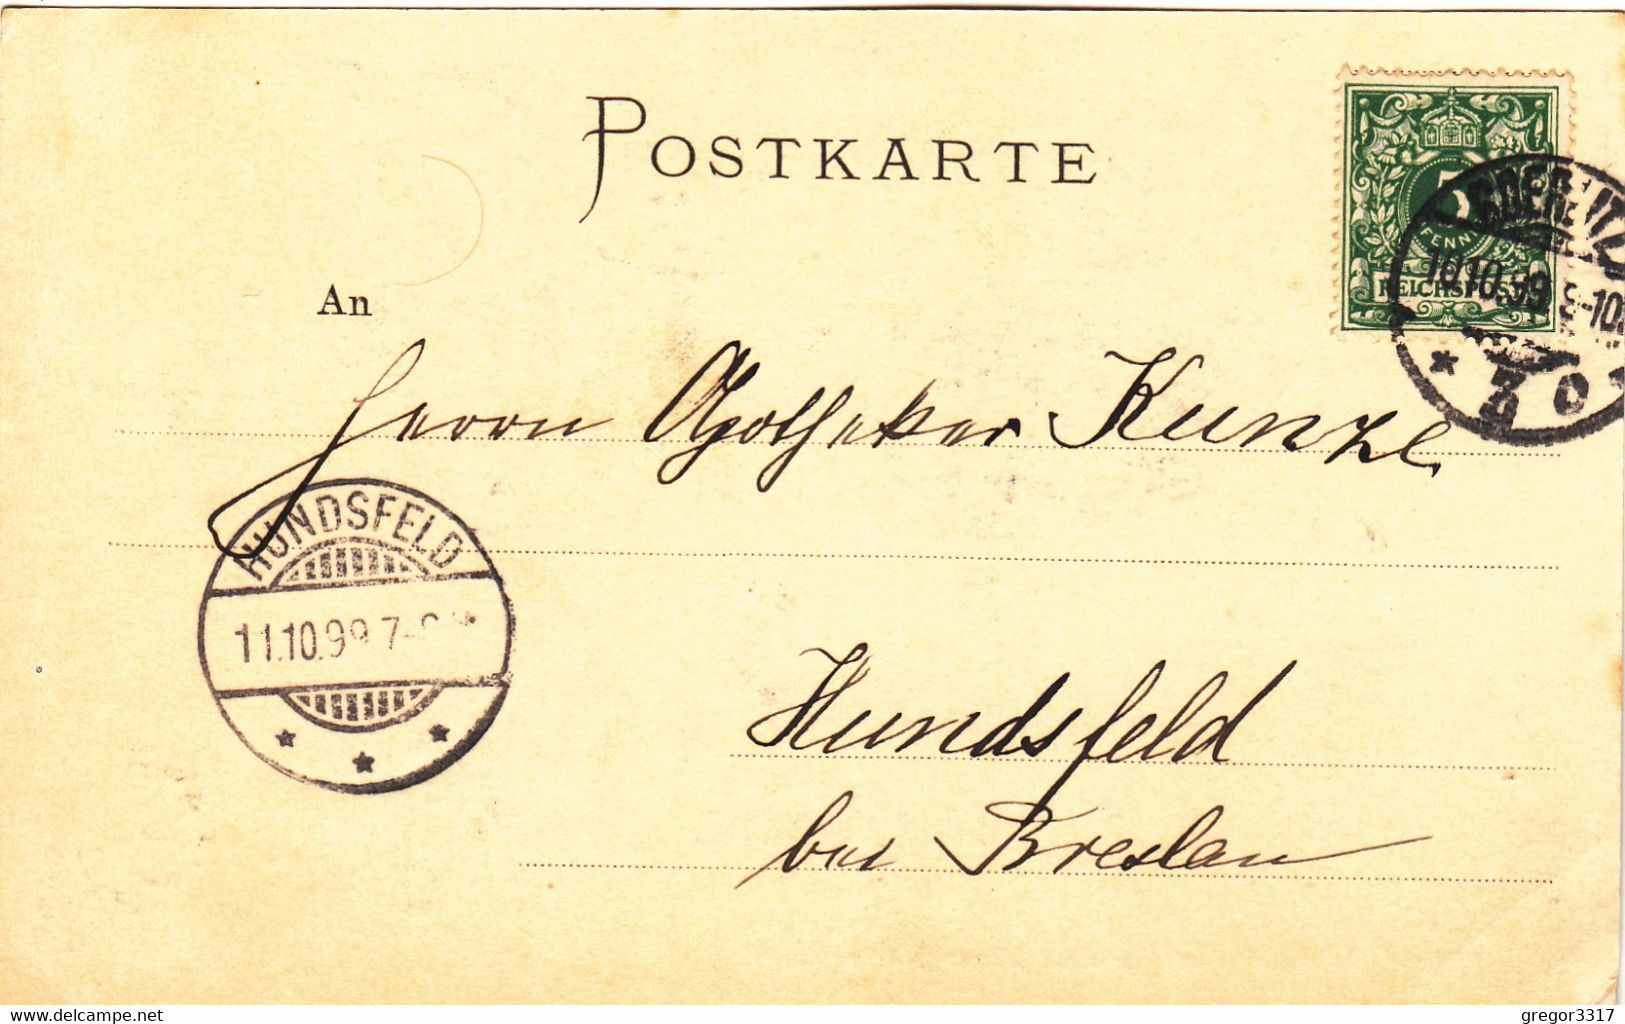 POSTKARTE
5
PFENNIG
REICHSPOST
10.10.99
* *
An
Herrn Apotheker Kunze
HUNDSFELD
11.10.99 7-
Hundsfeld
bei Breslau
www.delcampe.net
gregor3317